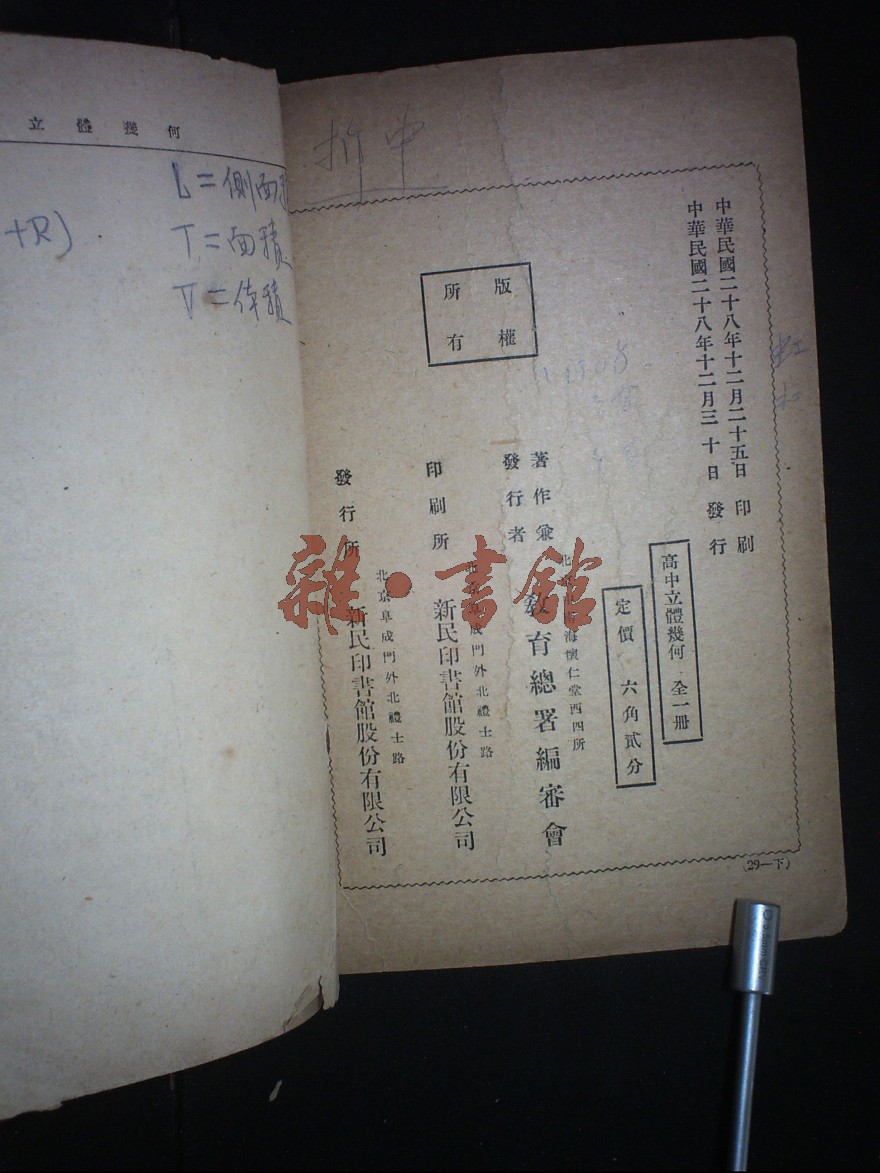 立體幾何
+R)
L=側面積
T=面積
V=体積
折中
中華民國二十八年十二月二十五日印刷
中華民國二十八年十二月三十日發行
高中立體幾何 全一冊
定價 六角貳分
版權
所有
著作兼
發行者
海懷仁堂西四所
教育總署編審會
印刷所
北京阜成門外北禮士路
新民印書館股份有限公司
發行所
北京阜成門外北禮士路
新民印書館股份有限公司
(29—下)
雜·書館